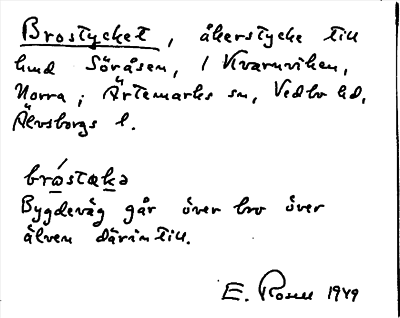 Brostycket, åkerstycke till
hmd Söråsen, i Kvarnviken,
Norra, Ärtemarks sn, Vedbo hd,
Älvsborgs l.
bro̱´stæḵə
Bygdeväg går över bro över
älven därintill.
E. Rosell 1949